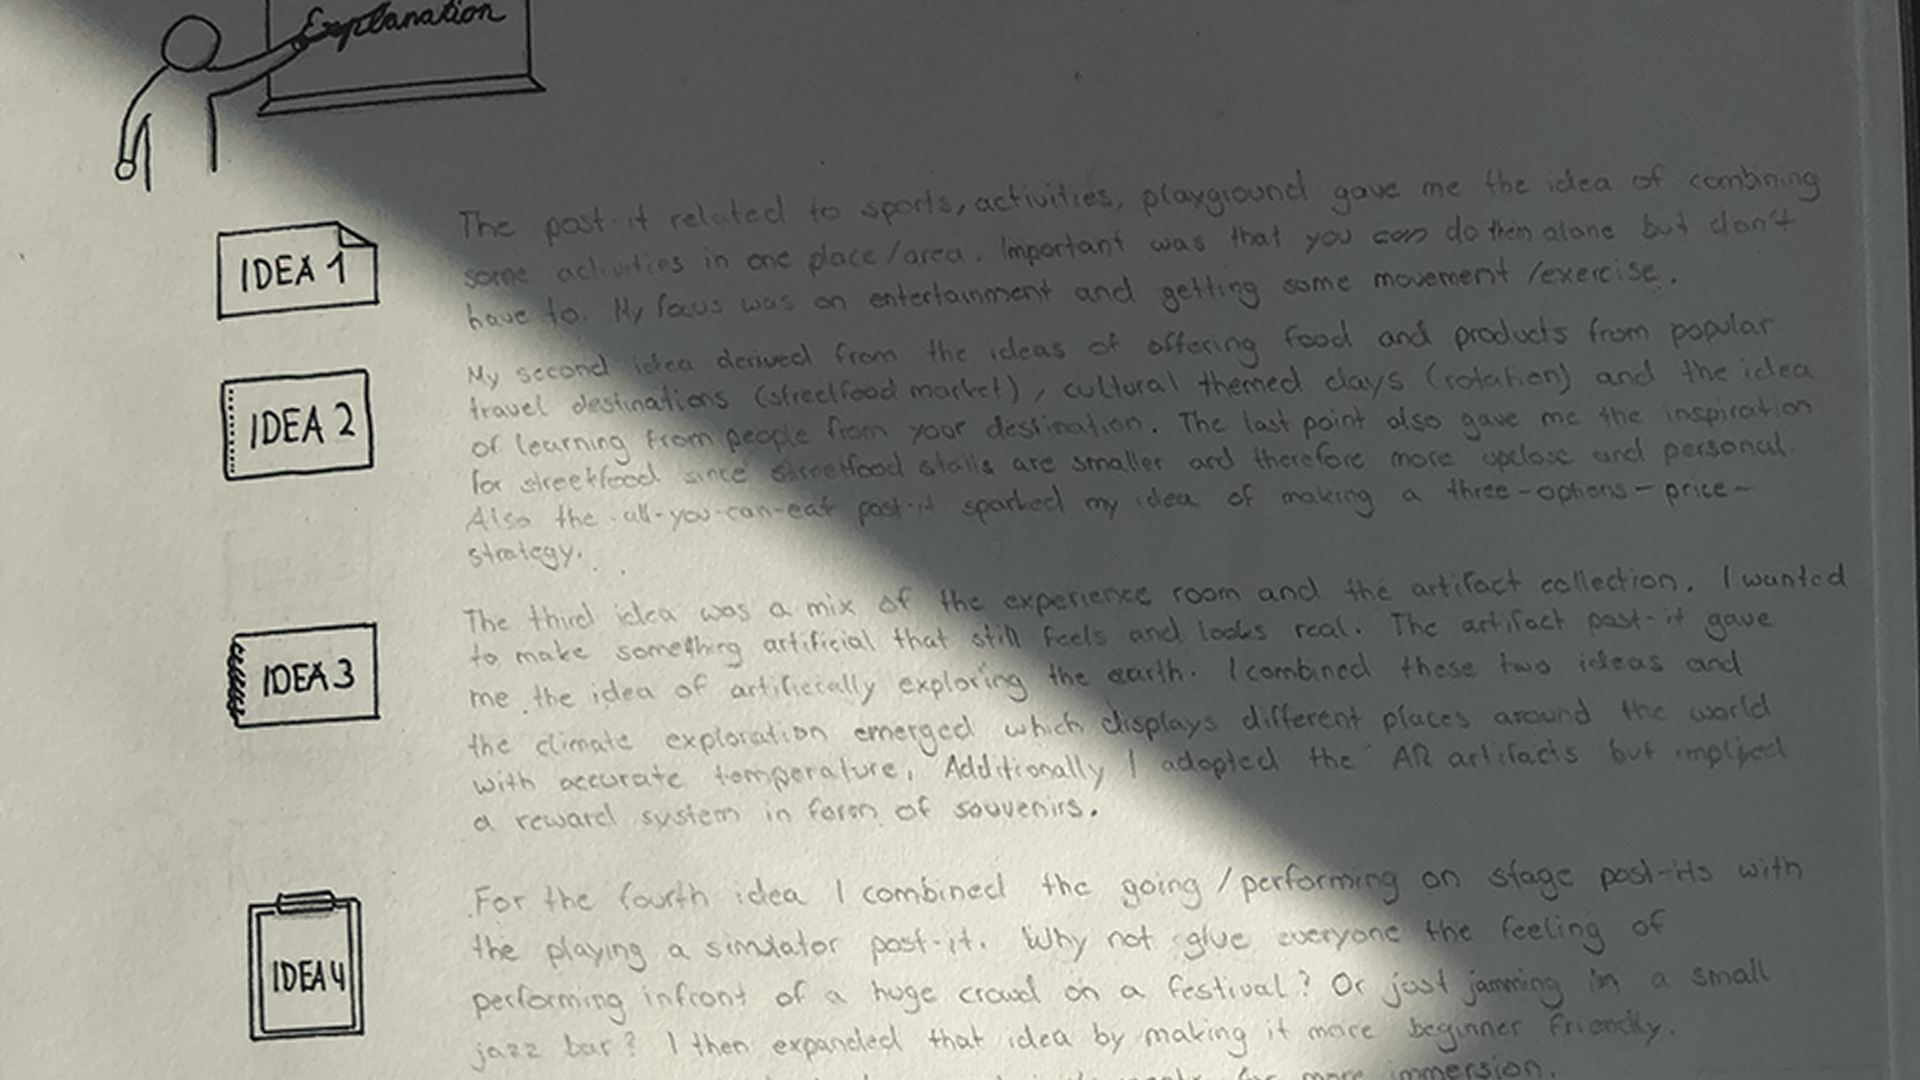 Explanation
IDEA 1
The post-it related to sports, activities, playground gave me the idea of combining
some activities in one place/area. Important was that you can do them alone but don't
have to. My focus was on entertainment and getting some movement /exercise.
IDEA 2
My second idea derived from the ideas of offering food and products from popular
travel destinations (streetfood market), cultural themed days (rotation) and the idea
of learning from people from your destination. The last point also gave me the inspiration
for streetfood since streetfood stalls are smaller and therefore more upclose and personal.
Also the all-you-can-eat post-it sparked my idea of making a three-options-price-
strategy.
IDEA 3
The third idea was a mix of the experience room and the artifact collection. I wanted
to make something artificial that still feels and looks real. The artifact post-it gave
me the idea of artificially exploring the earth. I combined these two ideas and
the climate exploration emerged which displays different places around the world
with accurate temperature. Additionally I adopted the AR artifacts but implied
a reward system in form of souvenirs.
IDEA 4
For the fourth idea I combined the going /performing on stage post-its with
the playing a simulator post-it. Why not give everyone the feeling of
performing infront of a huge crowd on a festival? Or just jamming in a small
jazz bar? I then expanded that idea by making it more beginner friendly.
for more immersion.